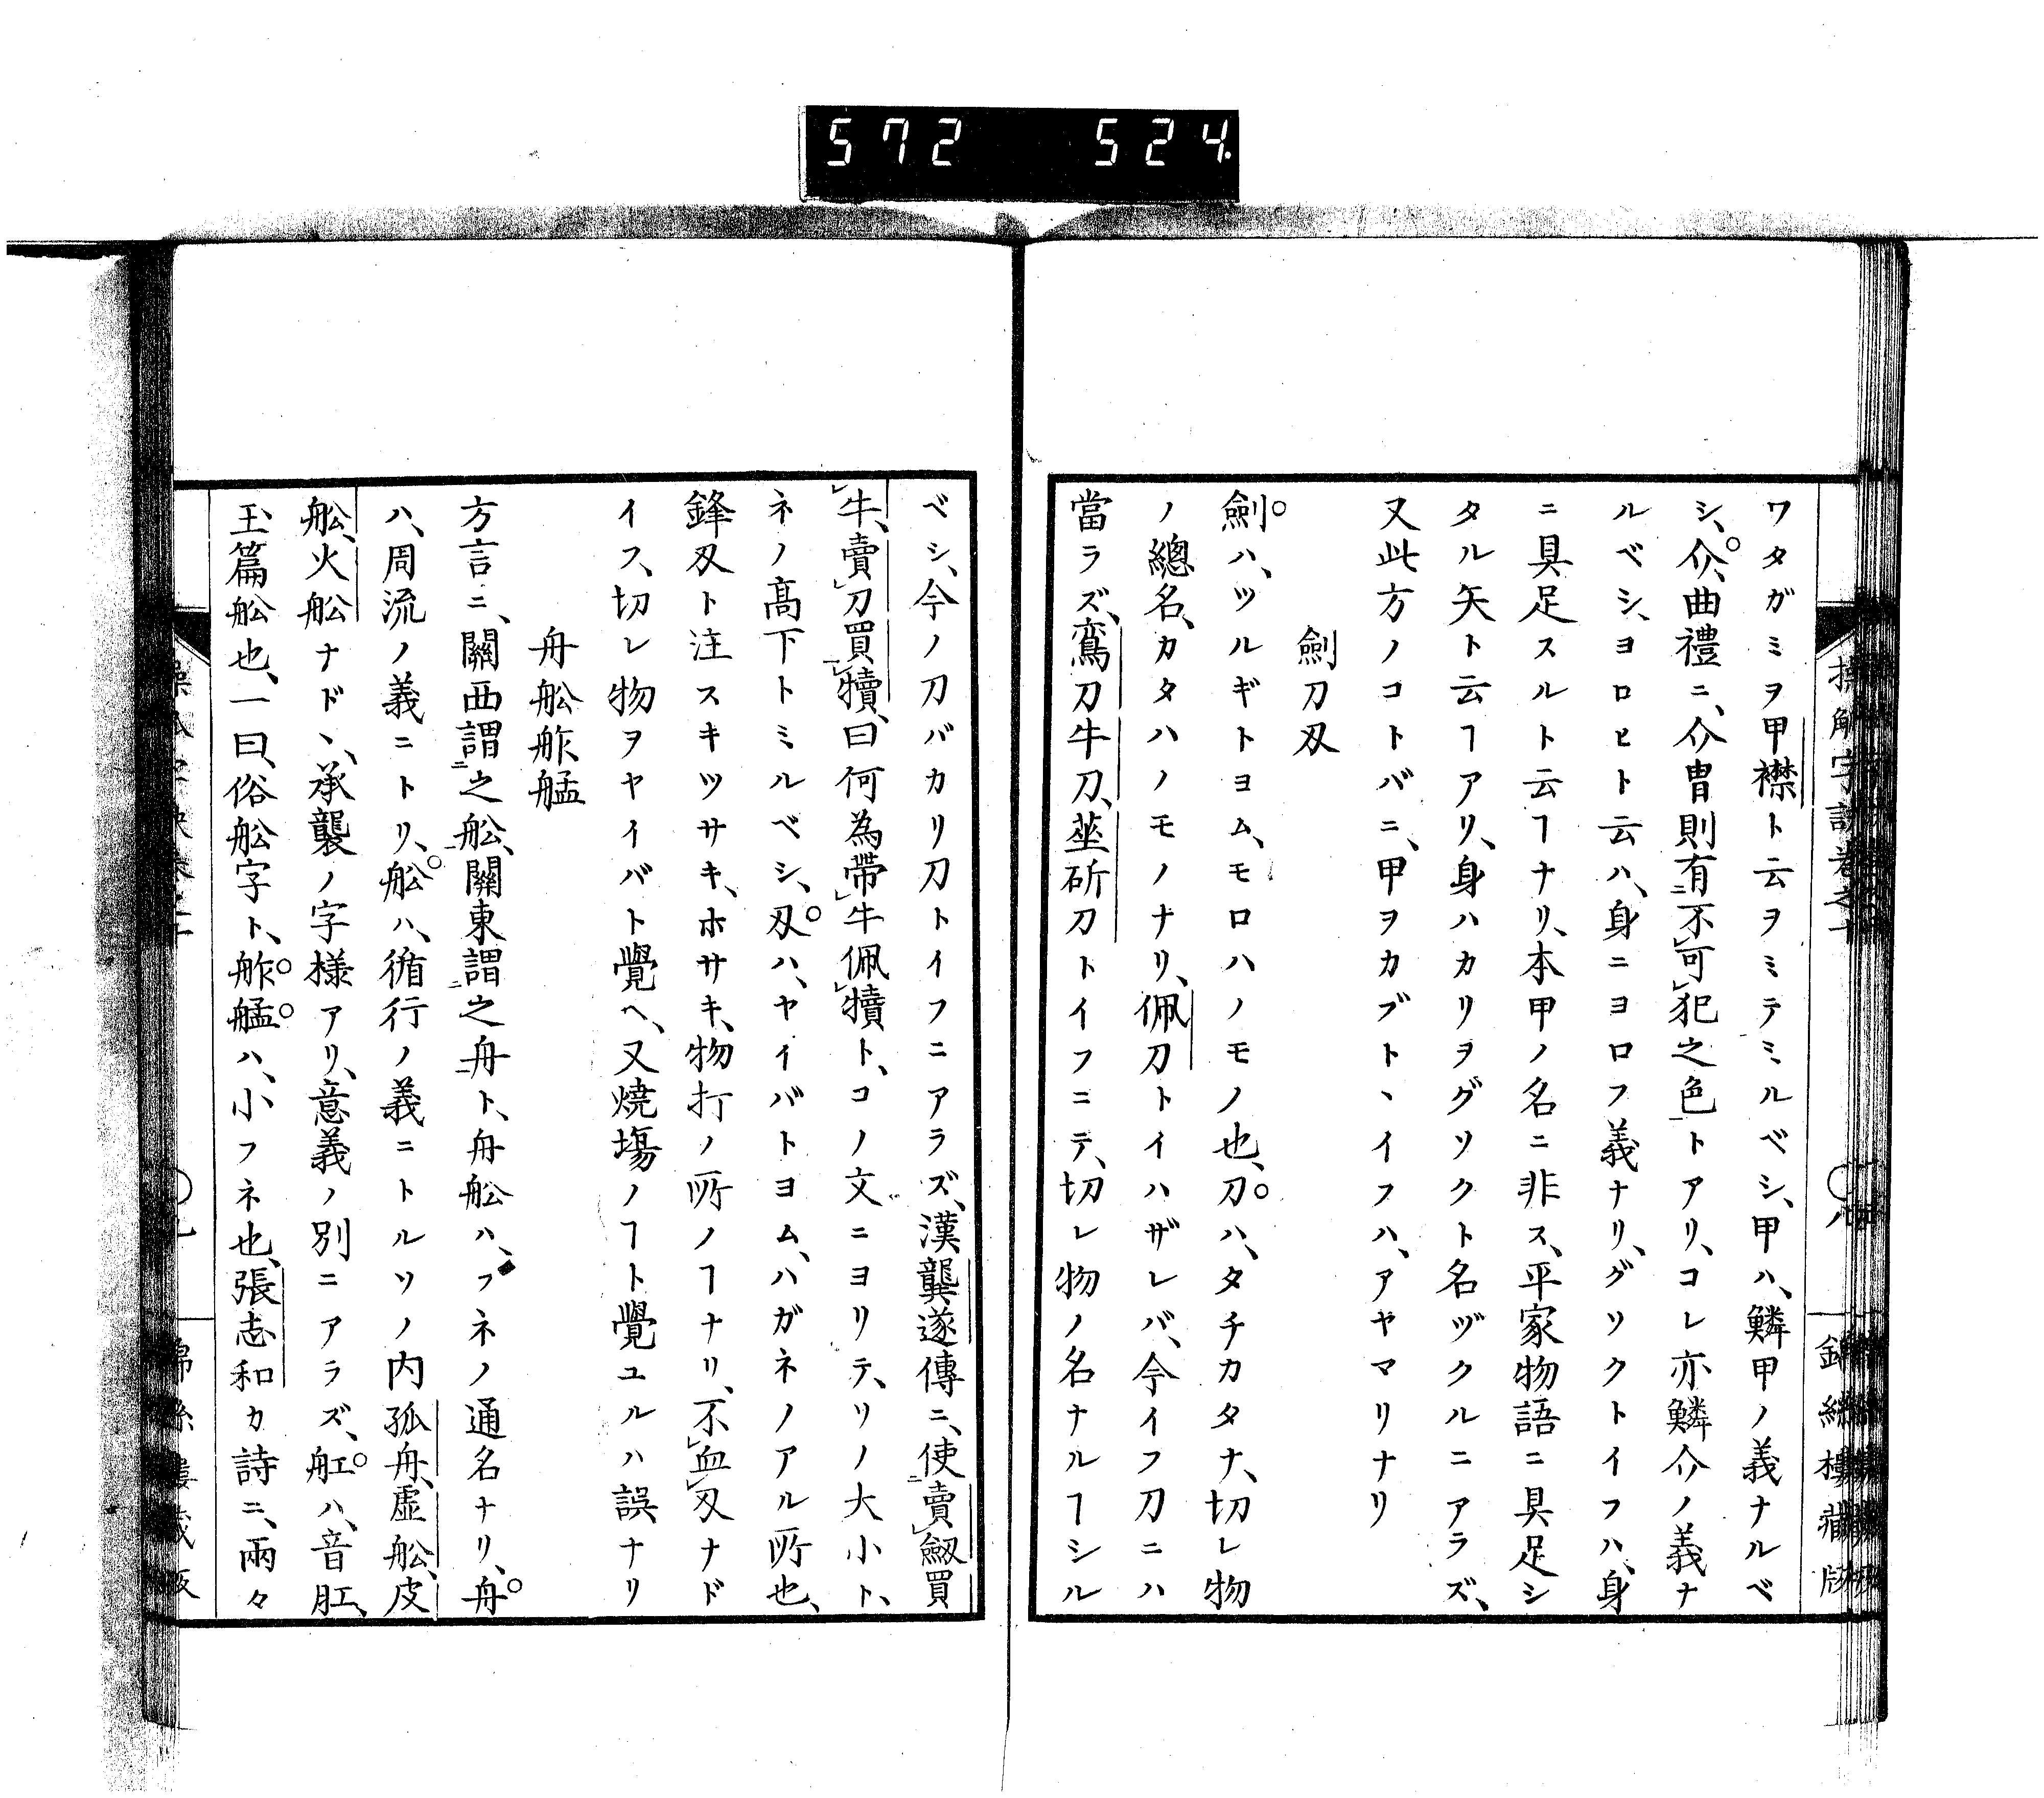 572 524.
ワタガミヲ甲襟ト云ヲミテミルベシ、甲ハ、鱗甲ノ義ナルベ
シ、介、曲禮ニ、介胄則有不可犯之色トアリ、コレ亦鱗介ノ義ナ
ルベシ、ヨロヒト云ハ、身ニヨロフ義ナリ、グソクトイフハ、身
ニ具足スルト云ヿナリ、本甲ノ名ニ非ス、平家物語ニ具足シ
タル矢ト云ヿアリ、身ハカリヲグソクト名ヅクルニアラズ、
又此方ノコトバニ、甲ヲカブトヽイフハ、アヤマリナリ
劍刀刄
劍ハ、ツルギトヨム、モロハノモノ也、刀ハ、タチカタナ、切レ物
ノ總名、カタハノモノナリ、佩刀トイハザレバ、今イフ刀ニハ
當ラズ、鸞刀牛刀、莝斫刀トイフニテ、切レ物ノ名ナルヿシル
ベシ、今ノ刀バカリ刀トイフニアラズ、漢龔遂傳ニ、使賣劔買
牛、賣刀買犢、曰何為帶牛佩犢ト、コノ文ニヨリテ、ソノ大小ト、
ネノ髙下トミルベシ、刄ハ、ヤイバトヨム、ハガネノアル所也、
鋒刄ト注スキツサキ、ホサキ、物打ノ所ノヿナリ、不血刄ナド
イフ、切レ物ヲヤイバト覺ヘ、又燒塲ノヿト覺ユルハ誤ナリ
舟舩舴艋
方言ニ、關西謂之舩、關東謂之舟ト、舟舩ハ、フネノ通名ナリ、舟
ハ、周流ノ義ニトリ、舩ハ、循行ノ義ニトルソノ内孤舟、虛舩、皮
舩、火舩ナドヽ、承襲ノ字様アリ、意義ノ別ニアラズ、舡ハ、音肛、
玉篇舩也、一曰、俗舩字ト、舴艋ハ、小フネ也、張志和カ詩ニ、兩々